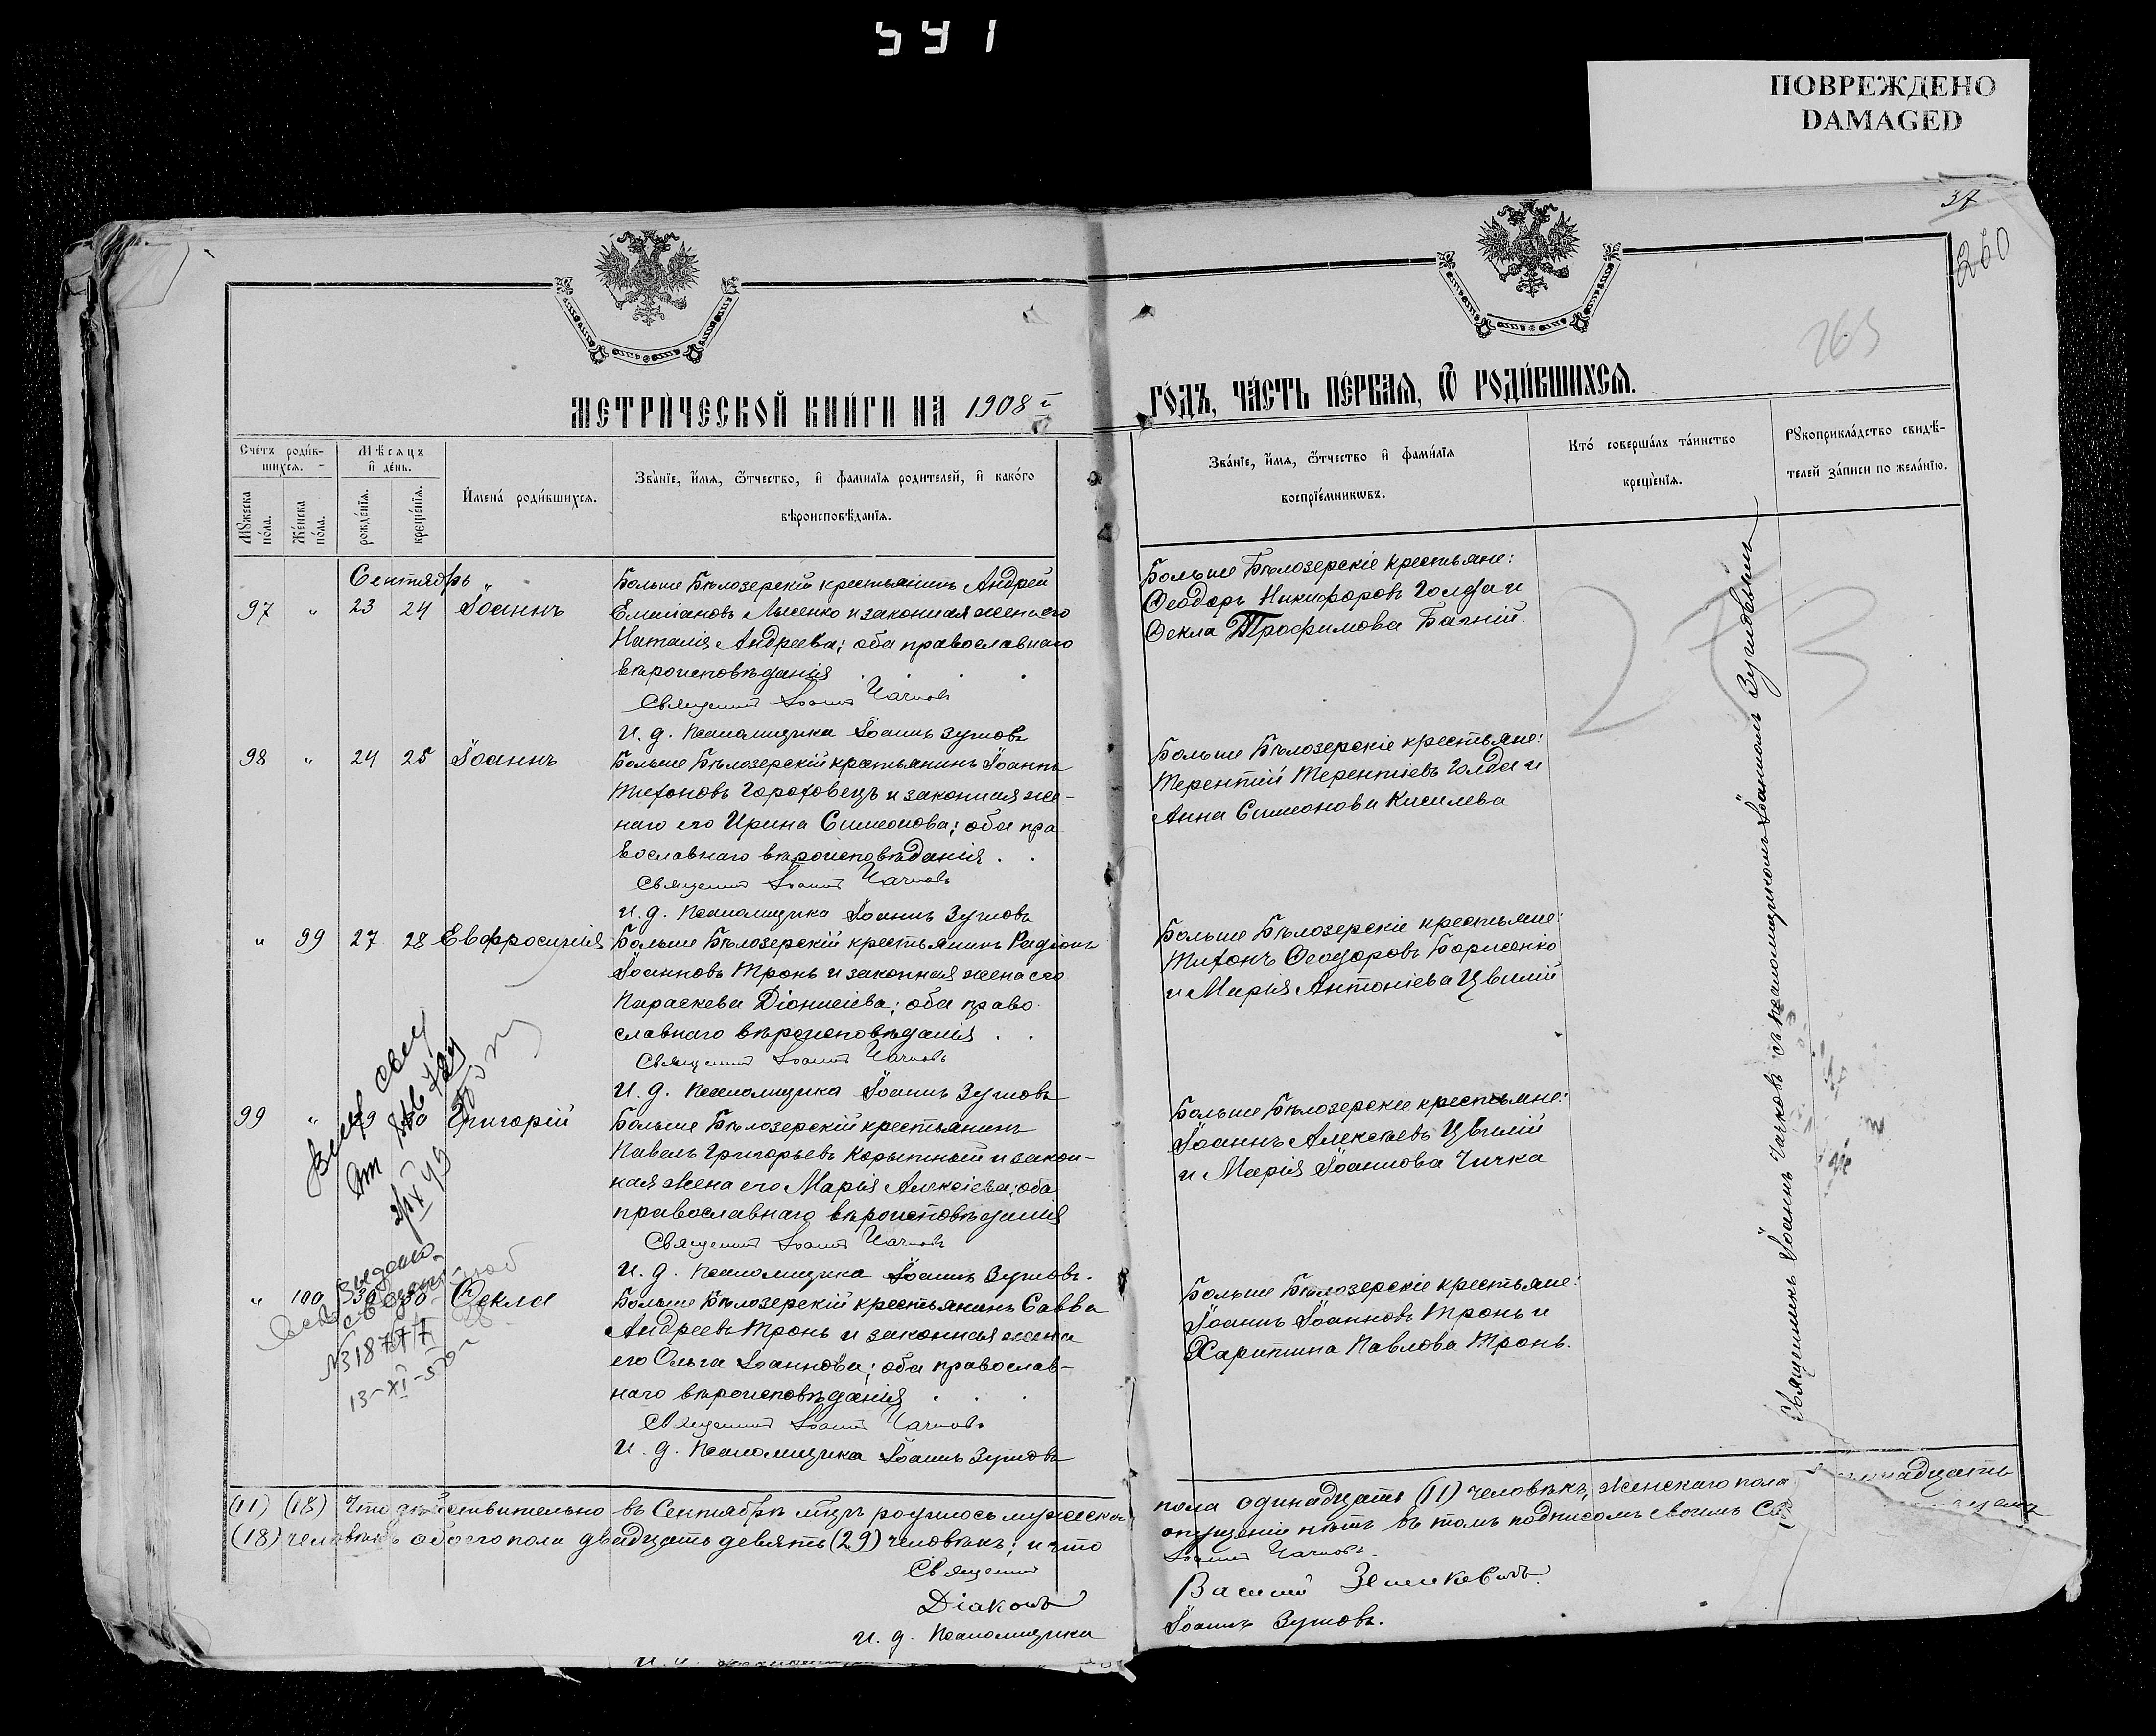 541
ПОВРЕЖДЕНО
DAMAGED
37
260
263
МЕТРИ́ЧЕСКОЙ КНИ́ГИ НА 1908 г.
ГО́ДЪ, ЧА́СТЬ ПЕ́РВАѦ, Ѡ РОДИ́ВШИХСѦ.
Сче́тъ роди́в-
шихся.
Мѣ́сяцъ
и де́нь.
Му́жеска по́ла.
Же́нска по́ла.
рожде́нія.
креще́нія.
Имена́ роди́вшихся.
Зва́ніе, и́мя, ѻ́тчество, и фами́лія родителей, и како́го
вѣроисповѣ́данія.
Зва́ніе, и́мя, ѻ́тчество и фами́лія
воспріе́мникѡвъ.
Кто́ соверша́лъ та́инство
креще́нія.
Рукоприкла́дство свидѣ́-
телей за́писи по жела́нію.
Сентябрь
97 " 23 24 Іоаннъ
Больше Бѣлозерскій крестьянинъ Андрей
Емиліановъ Лысенко и законная жена его
Наталія Андреева; оба православнаго
вѣроисповѣданія
Священникъ Іоаннъ Чачковъ
И. д. Псаломщика Іоаннъ Зуиовъ
Больше Бѣлозерскіе крестьяне:
Ѳеодоръ Никифоровъ Голда и
Ѳекла Трофимова Багній.
273
98 " 24 25 Іоаннъ
Больше Бѣлозерскій крестьянинъ Іоаннъ
Тихоновъ Гороховецъ и законная же-
наго его Ирина Симеонова; оба пра
вославнаго вѣроисповѣданія.
Священникъ Іоаннъ Чачковъ
И. д. Псаломщика Іоаннъ
Больше Бѣлозерскіе крестьяне:
Терентій Терентіевъ Голда и
Анна Симеонова Киселева
" 99 27 28 Евфросинія
Больше Бѣлозерскій крестьянинъ Радіонъ
Іоанновъ Тронь и законная жена его
Параскева Діонисіева; оба право
славнаго вѣроисповѣданія
Священникъ Іоаннъ Чачковъ
И. д. Псаломщика Іоаннъ
Больше Бѣлозерскіе крестьяне:
Тихонъ Ѳеодоровъ Борисенко
и Марія Антоніева Цвилій
99 " 29 30 Григорій
Больше Бѣлозерскій крестьянинъ
Павелъ Григорьевъ Корытный и закон-
ная жена его Марія Алексіева; оба
православнаго вѣроисповѣданія
Священникъ Іоаннъ Чачковъ
И. д. Псаломщика Іоаннъ
Больше Бѣлозерскіе крестьяне:
Іоаннъ Алексѣевъ Цвилій
и Марія Іоаннова Чичка
" 100 30 30 Ѳекла
Больше Бѣлозерскій крестьянинъ Савва
Андреевъ Тронь и законная жена
его Ольга Іоаннова; оба православ-
наго вѣроисповѣданія
Священникъ Іоаннъ Чачковъ
И. д. Псаломщика Іоаннъ
Больше Бѣлозерскіе крестьяне:
Іоаннъ Іоанновъ Тронь и
Харитина Павлова Тронь.
Священникъ Іоаннъ Чачковъ съ псаломщикомъ Іоанномъ
Выдано
№318777
13-XI-50г
(11) (18) Что дѣйствительно въ Сентябрѣ мцѣ родилось мужеска
пола одинадцать (11) человѣкъ, женскаго пола
(18) человѣкъ обоего пола двадцать девять (29) человѣкъ; и что
опущеній нѣтъ въ томъ подписомъ своимъ
Священникъ Іоаннъ Чачковъ.
Діаконъ Василій
И. д. Псаломщика Іоаннъ